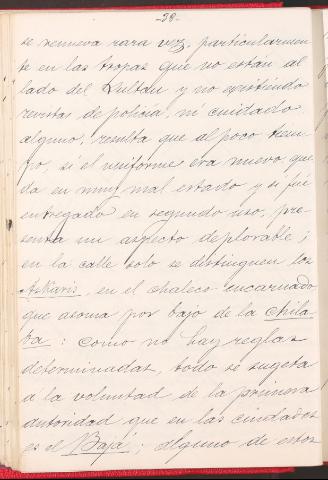 -28-
se renueva rara vez, particularmen
te en las tropas que no están al
lado del Sultan y no existiendo
revistas de policía, ni cuidado
alguno, resulta que al poco tiem
po, si el uniforme era nuevo que
da en muy mal estado y si fué
entregado en segundo uso, pre-
senta un aspecto deplorable;
en la calle solo se distinguen los
Askaris, en el chaleco encarnado
que asoma por bajo de la chila-
ba: como no hay reglas
determinadas, todo se sugeta
a la voluntad de la primera
autoridad que en las ciudades
es el Bajá; alguno de estos